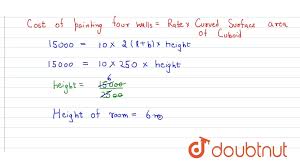 Cost of painting four walls = Rate x Curved Surface area
of Cuboid
15000 = 10 x 2 (l+b) x height
15000 = 10 x 250 x height
6
height = 15000
2500
Height of room = 6 m
doubtnut